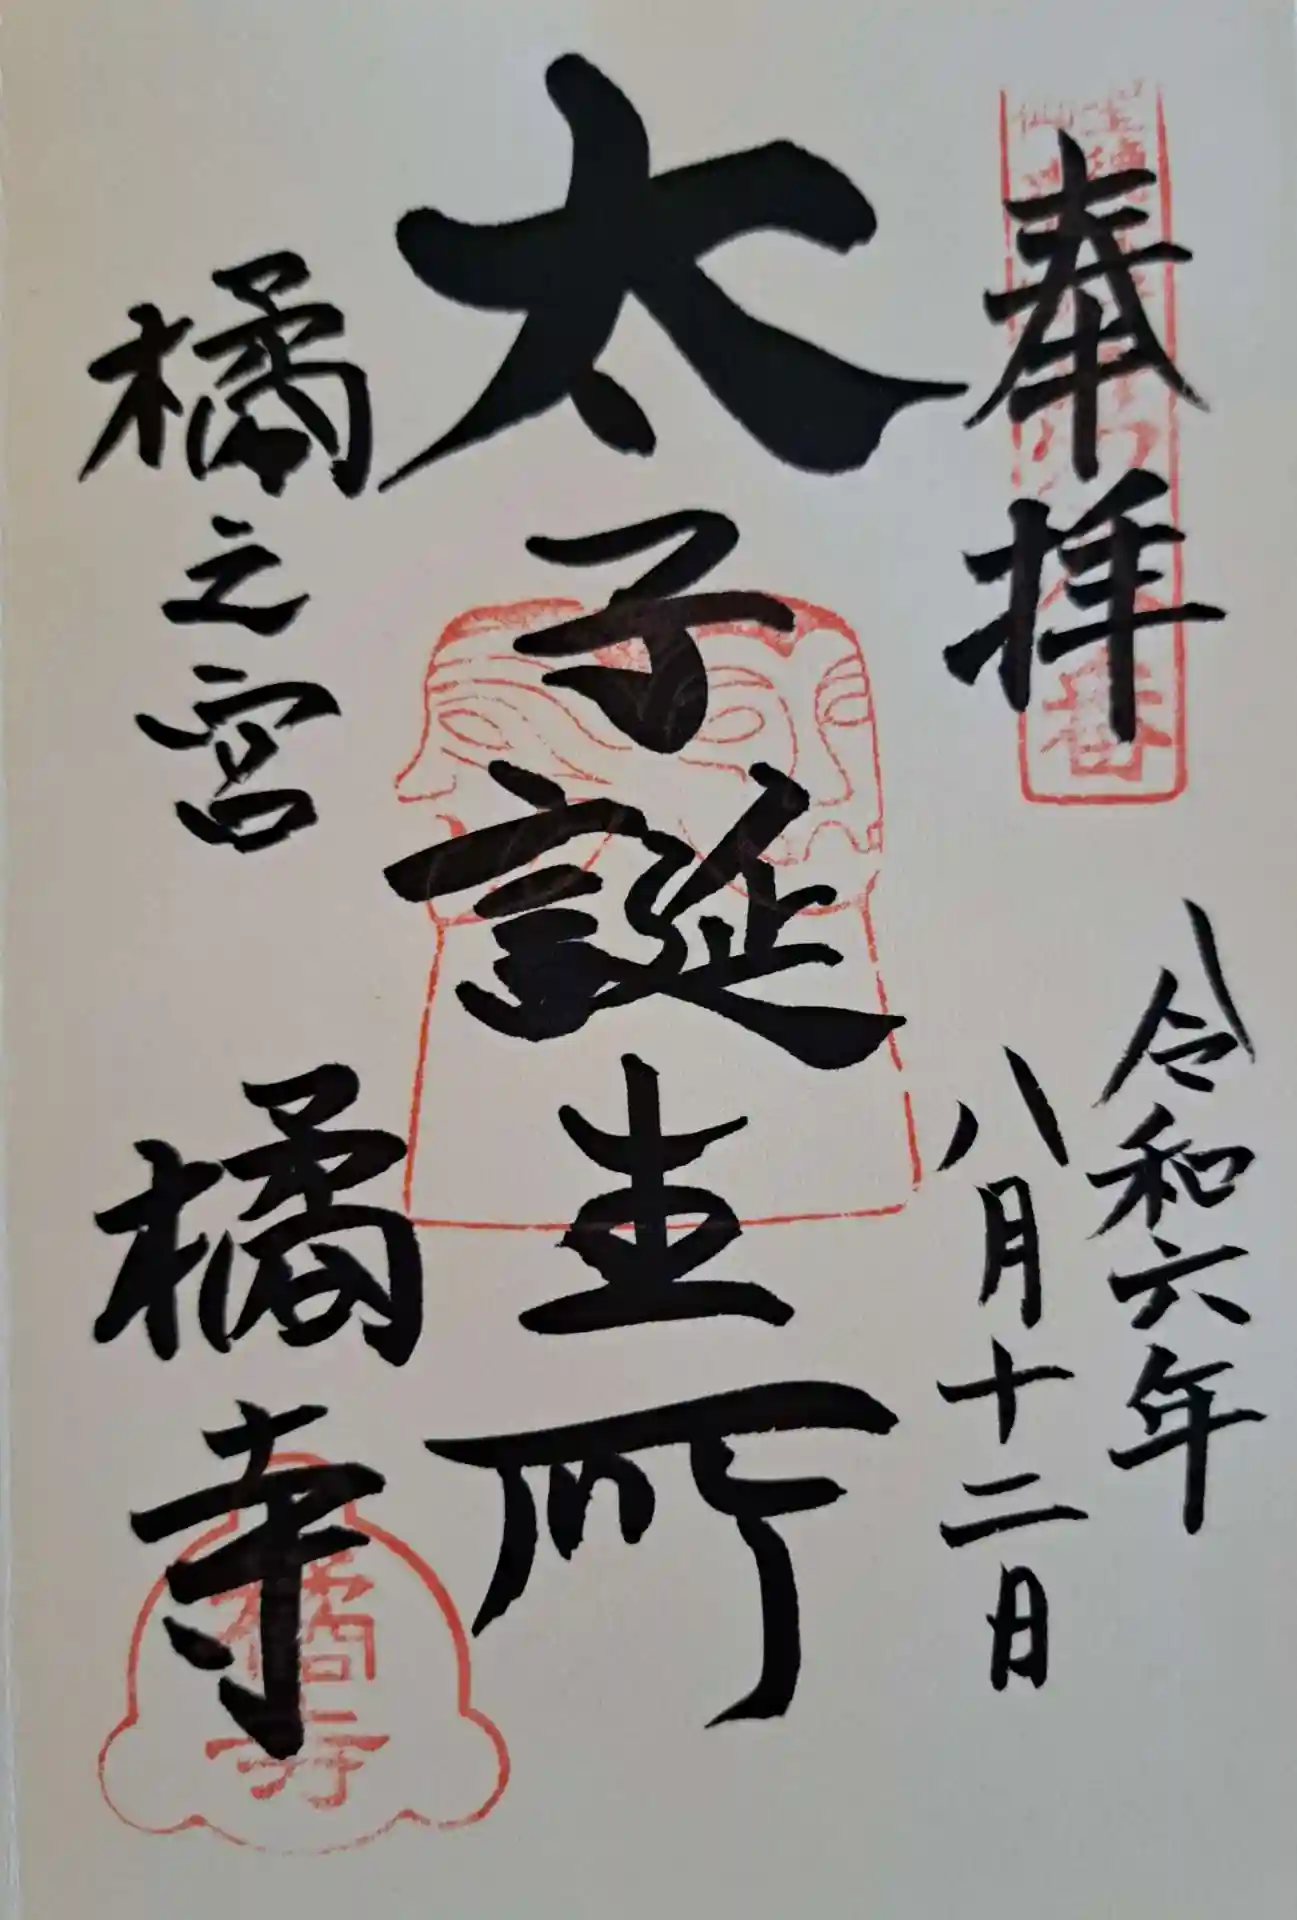 奉拝
令和六年
八月十二日
太子誕生所
橘之宮
橘寺
橘寺